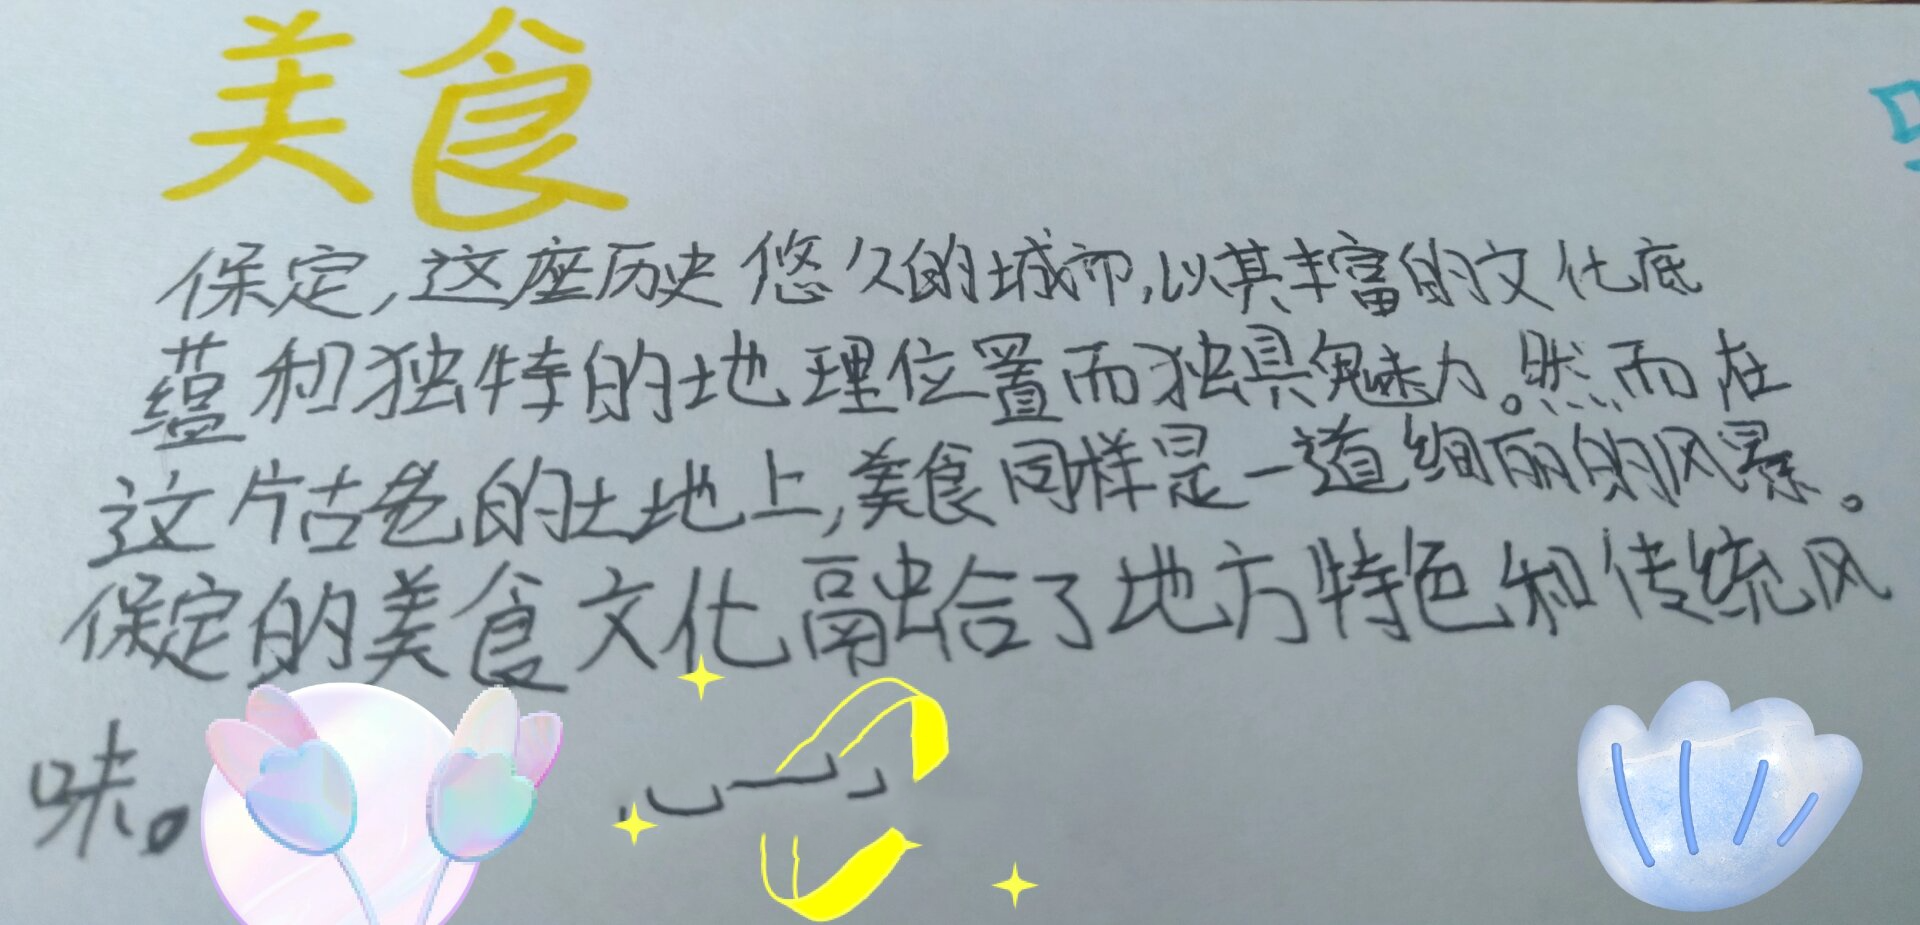 美食
保定,这座历史悠久的城市,以其丰富的文化底
蕴和独特的地理位置而独具魅力。然而在
这片古色的土地上,美食同样是一道绚丽的风景。
保定的美食文化融合了地方特色和传统风
味。